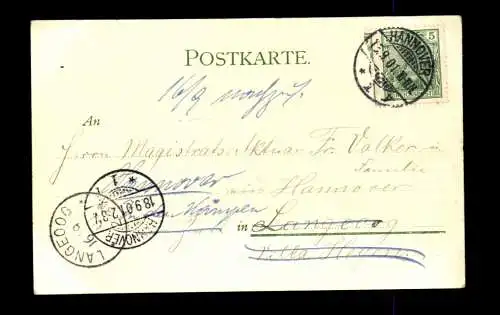 POSTKARTE.
HANNOVER
5
16/9
An
Herrn Magistrats-Aktuar Fr. Volker u
Familie
Hannover aus Hannover
in Langeoog
Villa
LANGEOOG
16
9
HANNOVER
18.9.01
1